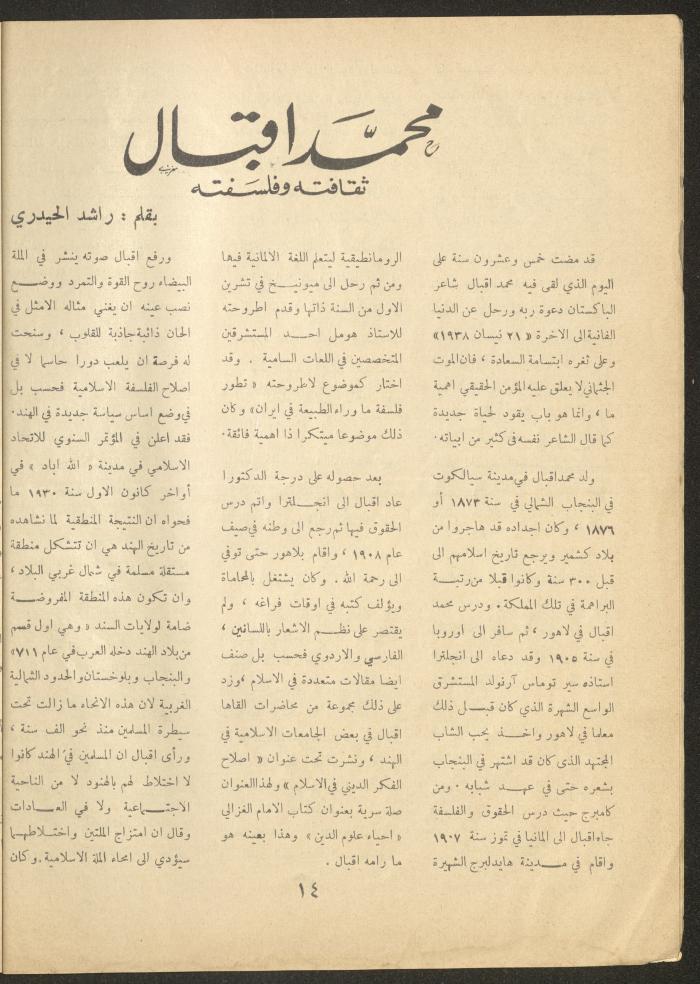 محمد اقبال
ثقافته وفلسفته
بقلم : راشد الحيدري
قد مضت خمس وعشرون سنة على
اليوم الذي لقى فيه محمد اقبال شاعر
الباكستان دعوة ربه ورحل عن الدنيا
الفانية الى الاخرة « ٢١ نيسان ١٩٣٨»
وعلى ثغره ابتسامة السعادة ، فان الموت
الجثماني لا يعلق عليه المؤمن الحقيقي اهمية
ما ، وانما هو باب يقود لحياة جديدة
كما قال الشاعر نفسه في كثير من ابياته.
ولد محمد اقبال في مدينة سيالكوت
في البنجاب الشمالي في سنة ١٨٧٣ أو
١٨٧٦ ، وكان اجداده قد هاجروا من
بلاد كشمير ويرجع تاريخ اسلامهم الى
قبل ٣٠٠ سنة وكانوا قبلا من رتبة
البراهمة في تلك المملكة. ودرس محمد
اقبال في لاهور ، ثم سافر الى اوروبا
في سنة ١٩٠٥ وقد دعاه الى انجلترا
استاذه سير توماس آرنولد المستشرق
الواسع الشهرة الذي كان قبل ذلك
معلما في لاهور واخذ يحب الشاب
المجتهد الذي كان قد اشتهر في البنجاب
بشعره حتى في عهد شبابه . ومن
كامبرج حيث درس الحقوق والفلسفة
جاء اقبال الى المانيا في تموز سنة ١٩٠٧
واقام في مدينة هايدلبرج الشهيرة
الرومانطيقية ليتعلم اللغة الالمانية فيها
ومن ثم رحل الى ميونيخ في تشرين
الاول من السنة ذاتها وقدم اطروحته
للاستاذ هومل احد المستشرقين
المتخصصين في اللغات السامية . وقد
اختار كموضوع لاطروحته « تطور
فلسفة ما وراء الطبيعة في ايران» وكان
ذلك موضوعا مبتكرا ذا اهمية فائقة.
بعد حصوله على درجة الدكتورا
عاد اقبال الى انجلترا واتم درس
الحقوق فيها ثم رجع الى وطنه في صيف
عام ١٩٠٨ ، واقام بلاهور حتى توفي
الى رحمة الله . وكان يشتغل بالمحاماة
ويؤلف كتبه في اوقات فراغه ، ولم
يقتصر على نظم الاشعار باللسانين ،
الفارسي والاردوي فحسب بل صنف
ايضا مقالات متعددة في الاسلام ،وزد
على ذلك مجموعة من محاضرات القاها
اقبال في بعض الجامعات الاسلامية في
الهند ، ونشرت تحت عنوان « اصلاح
الفكر الديني في الاسلام » ولهذا العنوان
صلة سرية بعنوان كتاب الامام الغزالي
« احياء علوم الدين» وهذا بعينه هو
ما رامه اقبال .
ورفع اقبال صوته ينشر في الملة
البيضاء روح القوة والتمرد ووضع
نصب عينه ان يغني مثاله الامثل في
الحان ذائبة جاذبة للقلوب ، وسنحت
له فرصة ان يلعب دورا حاسما لا في
اصلاح الفلسفة الاسلامية فحسب بل
في وضع اساس سياسة جديدة في الهند.
فقد اعلن في المؤتمر السنوي للاتحاد
الاسلامي في مدينة « الله اباد » في
أواخر كانون الاول سنة ١٩٣٠ ما
فحواه ان النتيجة المنطقية لما نشاهده
من تاريخ الهند هي ان تتشكل منطقة
مستقلة مسلمة في شمال غربي البلاد ،
وان تكون هذه المنطقة المفروضة
ضامة لولايات السند « وهي اول قسم
من بلاد الهند دخله العرب في عام ٧١١»
والبنجاب وبلوخستان والحدود الشمالية
الغربية لان هذه الانحاء ما زالت تحت
سيطرة المسلمين منذ نحو الف سنة ،
ورأى اقبال ان المسلمين في الهند كانوا
لا اختلاط لهم بالهنود لا من الناحية
الاجتماعية ولا في العادات
وقال ان امتزاج الملتين واختلاطهما
سيؤدي الى امحاء الملة الاسلامية.وكان
١٤